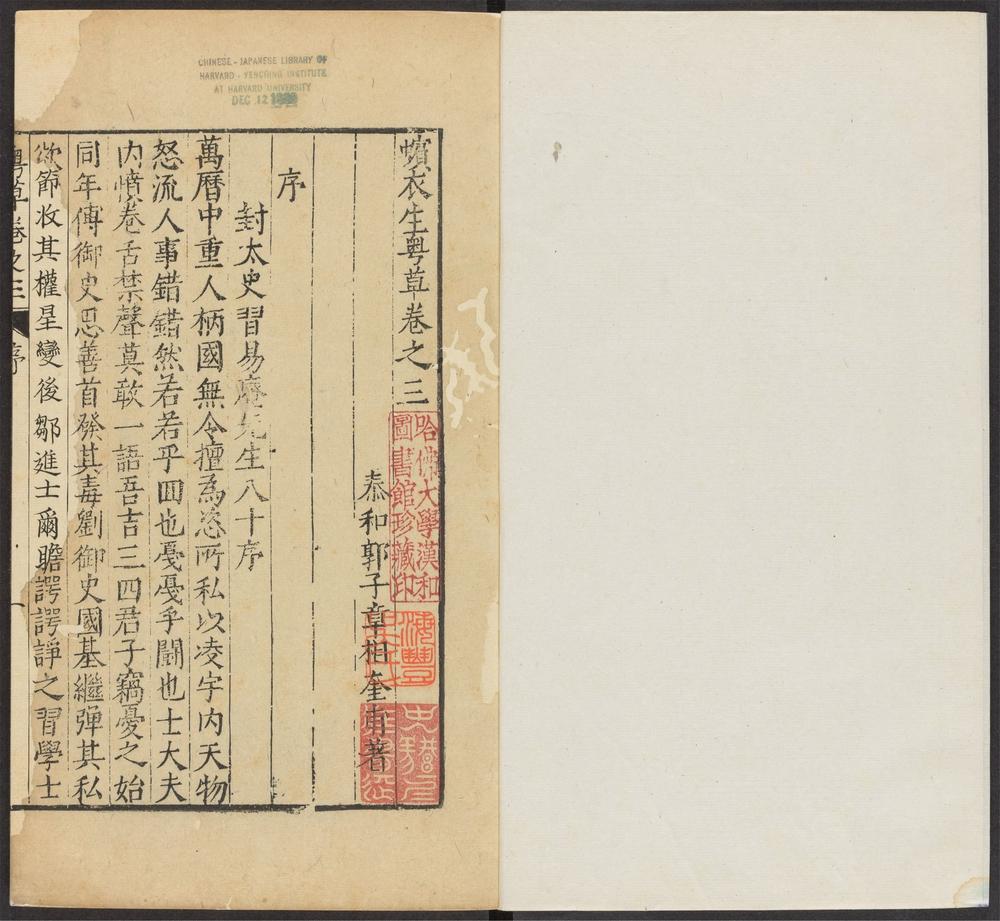 CHINESE - JAPANESE LIBRARY OF
HARVARD - YENCHING INSTITUTE
AT HARVARD UNIVERSITY
DEC 12
蠙衣生粤草卷之三
哈佛大學漢和
圖書館珍藏印
泰和郭子章相奎甫著
序
封太史習易庵先生八十序
萬曆中重人柄國無令擅爲恣所私以凌宇内天物
怒流人事錯錯然若若乎囬也戞戞乎鬭也士大夫
内憤卷舌禁聲莫敢一語吾吉三四君子竊憂之始
同年傅御史㤅善首發其毒劉御史國基繼彈其私
欲節收其權星變後鄒進士爾瞻諤諤諍之習學士
粤草卷之三
序
一